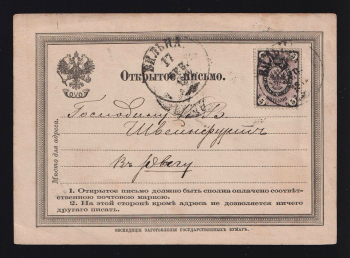 ВИЛЬНА
17
Открытое письмо.
Господину
Швейнфурту
въ Ригу
Место для адреса.
1. Открытое письмо должно быть сполна оплачено соответ-
ственною почтовою маркою.
2. На этой стороне кроме адреса не дозволяется ничего
другаго писать.
ЭКСПЕДИЦІЯ ЗАГОТОВЛЕНІЯ ГОСУДАРСТВЕННЫХЪ БУМАГЪ.